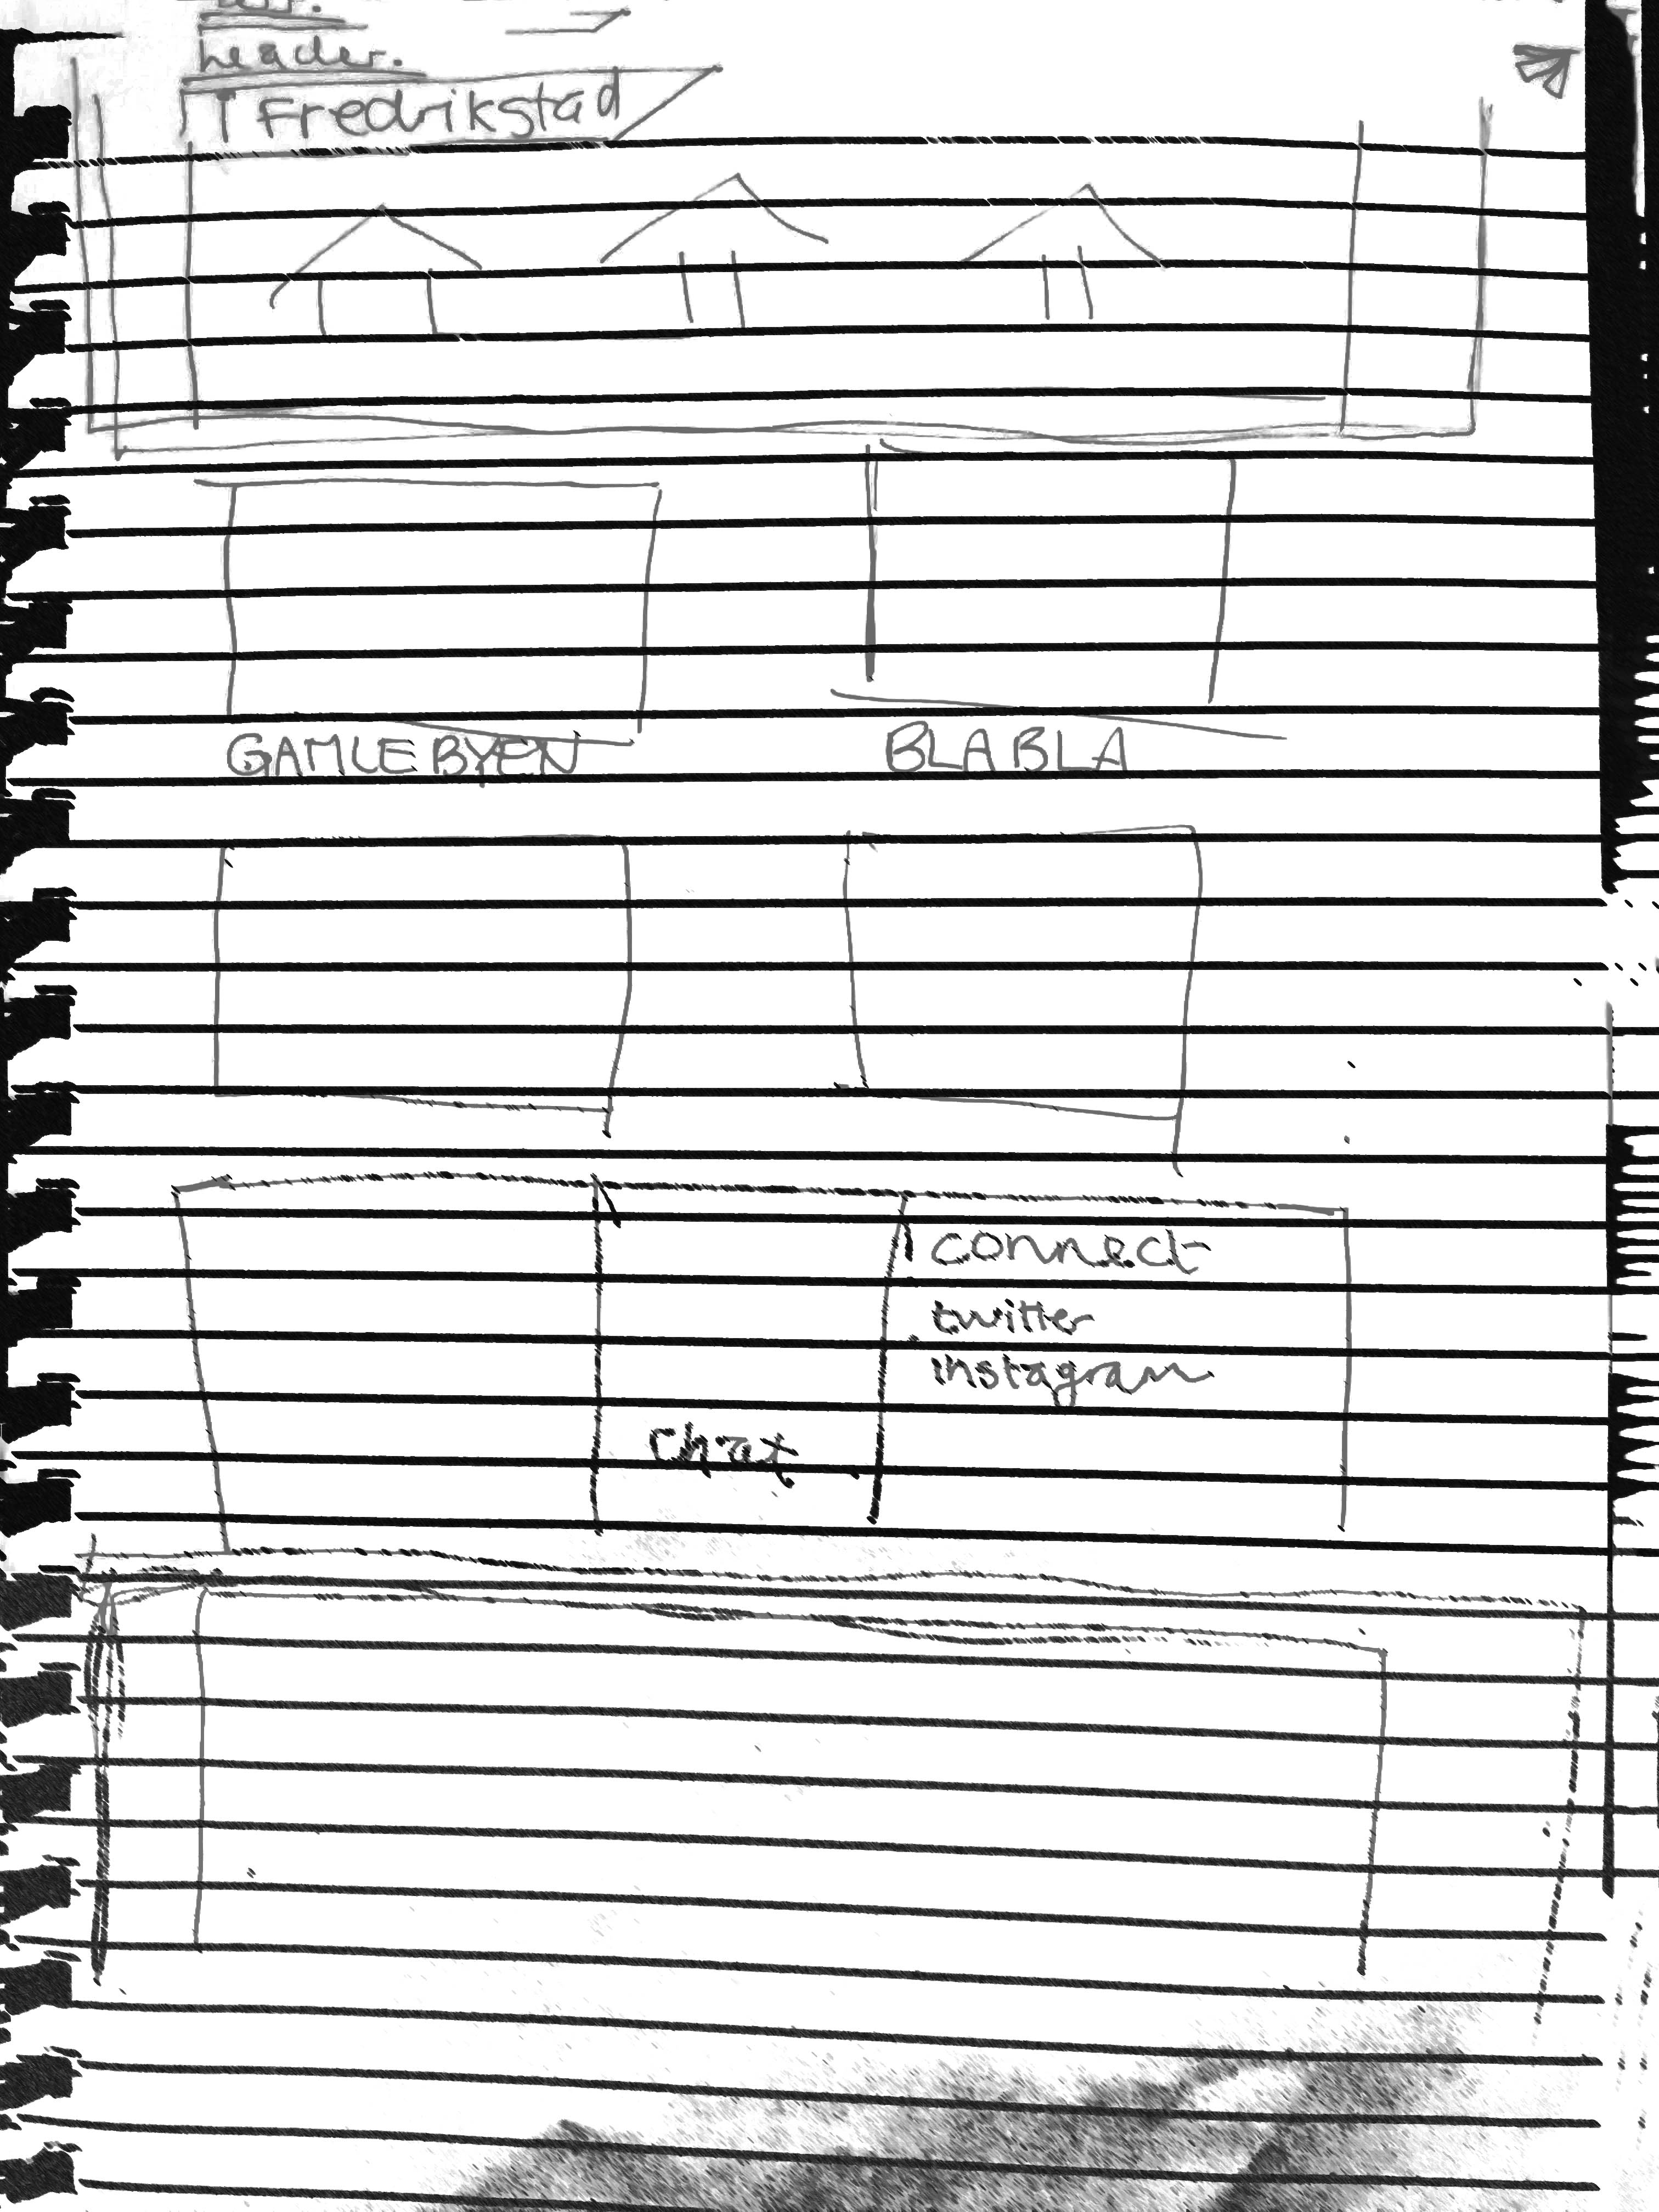 header.
i Fredrikstad
GAMLE BYEN
BLA BLA
connect
twitter
instagram
Chat